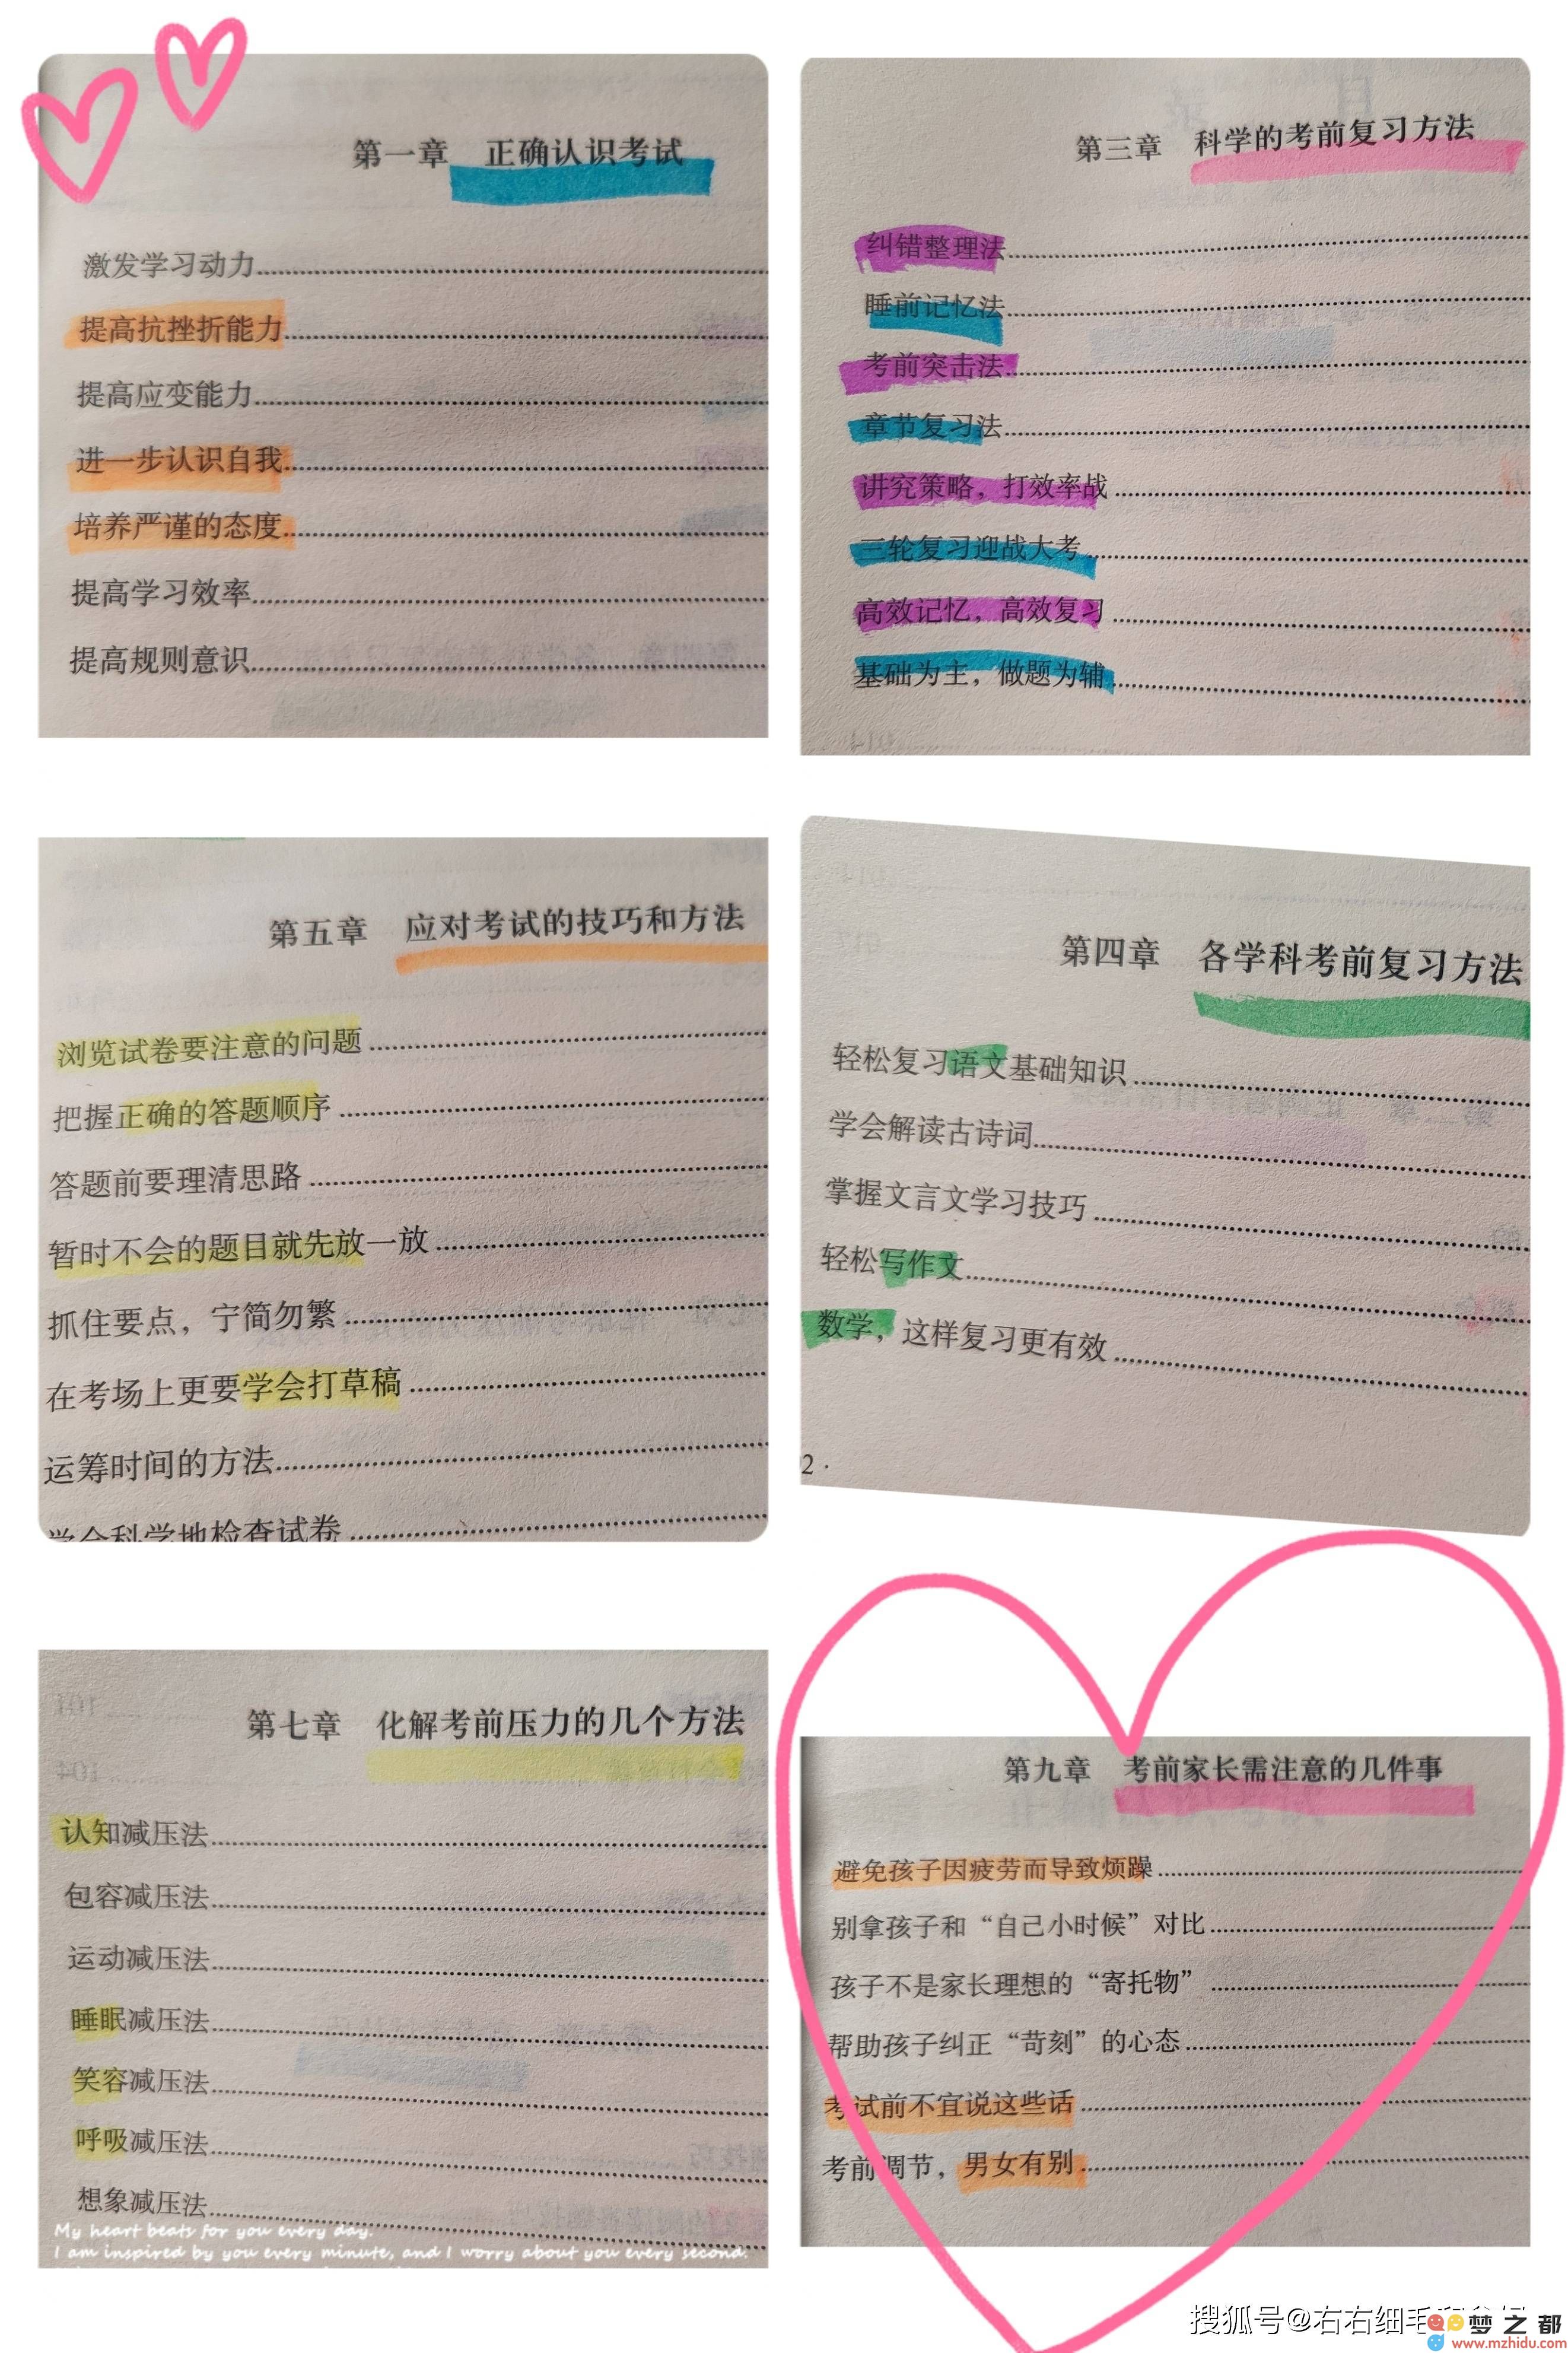 第一章 正确认识考试
激发学习动力
提高抗挫折能力
提高应变能力
进一步认识自我
培养严谨的态度
提高学习效率
提高规则意识
第三章 科学的考前复习方法
纠错整理法
睡前记忆法
考前突击法
章节复习法
讲究策略，打效率战
三轮复习迎战大考
高效记忆，高效复习
基础为主，做题为辅
第五章 应对考试的技巧和方法
浏览试卷要注意的问题
把握正确的答题顺序
答题前要理清思路
暂时不会的题目就先放一放
抓住要点，宁简勿繁
在考场上更要学会打草稿
运筹时间的方法
学会科学地检查试卷
第四章 各学科考前复习方法
轻松复习语文基础知识
学会解读古诗词
掌握文言文学习技巧
轻松写作文
数学，这样复习更有效
2 ·
第七章 化解考前压力的几个方法
认知减压法
包容减压法
运动减压法
睡眠减压法
笑容减压法
呼吸减压法
想象减压法
My heart beats for you every day.
I am inspired by you every minute, and I worry about you every second.
第九章 考前家长需注意的几件事
避免孩子因疲劳而导致烦躁
别拿孩子和“自己小时候”对比
孩子不是家长理想的“寄托物”
帮助孩子纠正“苛刻”的心态
考试前不宜说这些话
考前调节，男女有别
搜狐号@右右细毛
梦之都
www.mzhidu.com